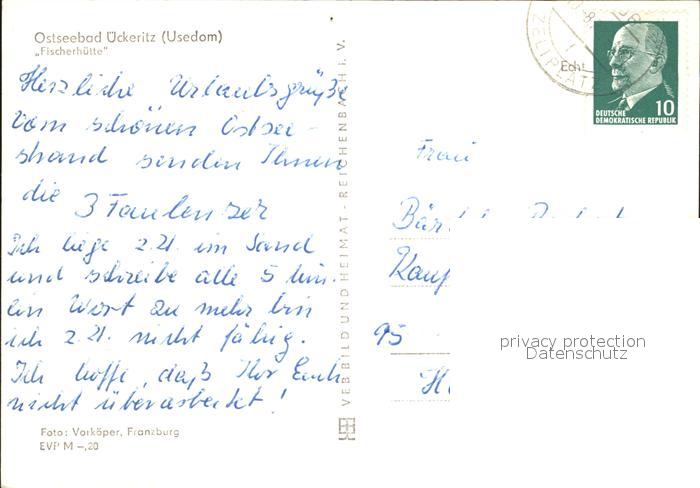 Ostseebad Ückeritz (Usedom)
„Fischerhütte"
Herzliche Urlaubsgrüße
vom schönen Ostsee-
strand senden Ihnen
die 3 Faulenzer
Ich liege z.Zt. im Sand
und schreibe alle 5 Min.
ein Wort zu mehr bin
ich z.Zt. nicht fähig.
Ich hoffe, daß Ihr Euch
nicht überarbeitet!
Foto: Vorköper, Franzburg
EVP M –,20
VEB BILD UND HEIMAT · REICHENBACH I. V.
ZELTPLATZ
Echt
10
DEUTSCHE
DEMOKRATISCHE REPUBLIK
Frau
Bär
95
privacy protection
Datenschutz